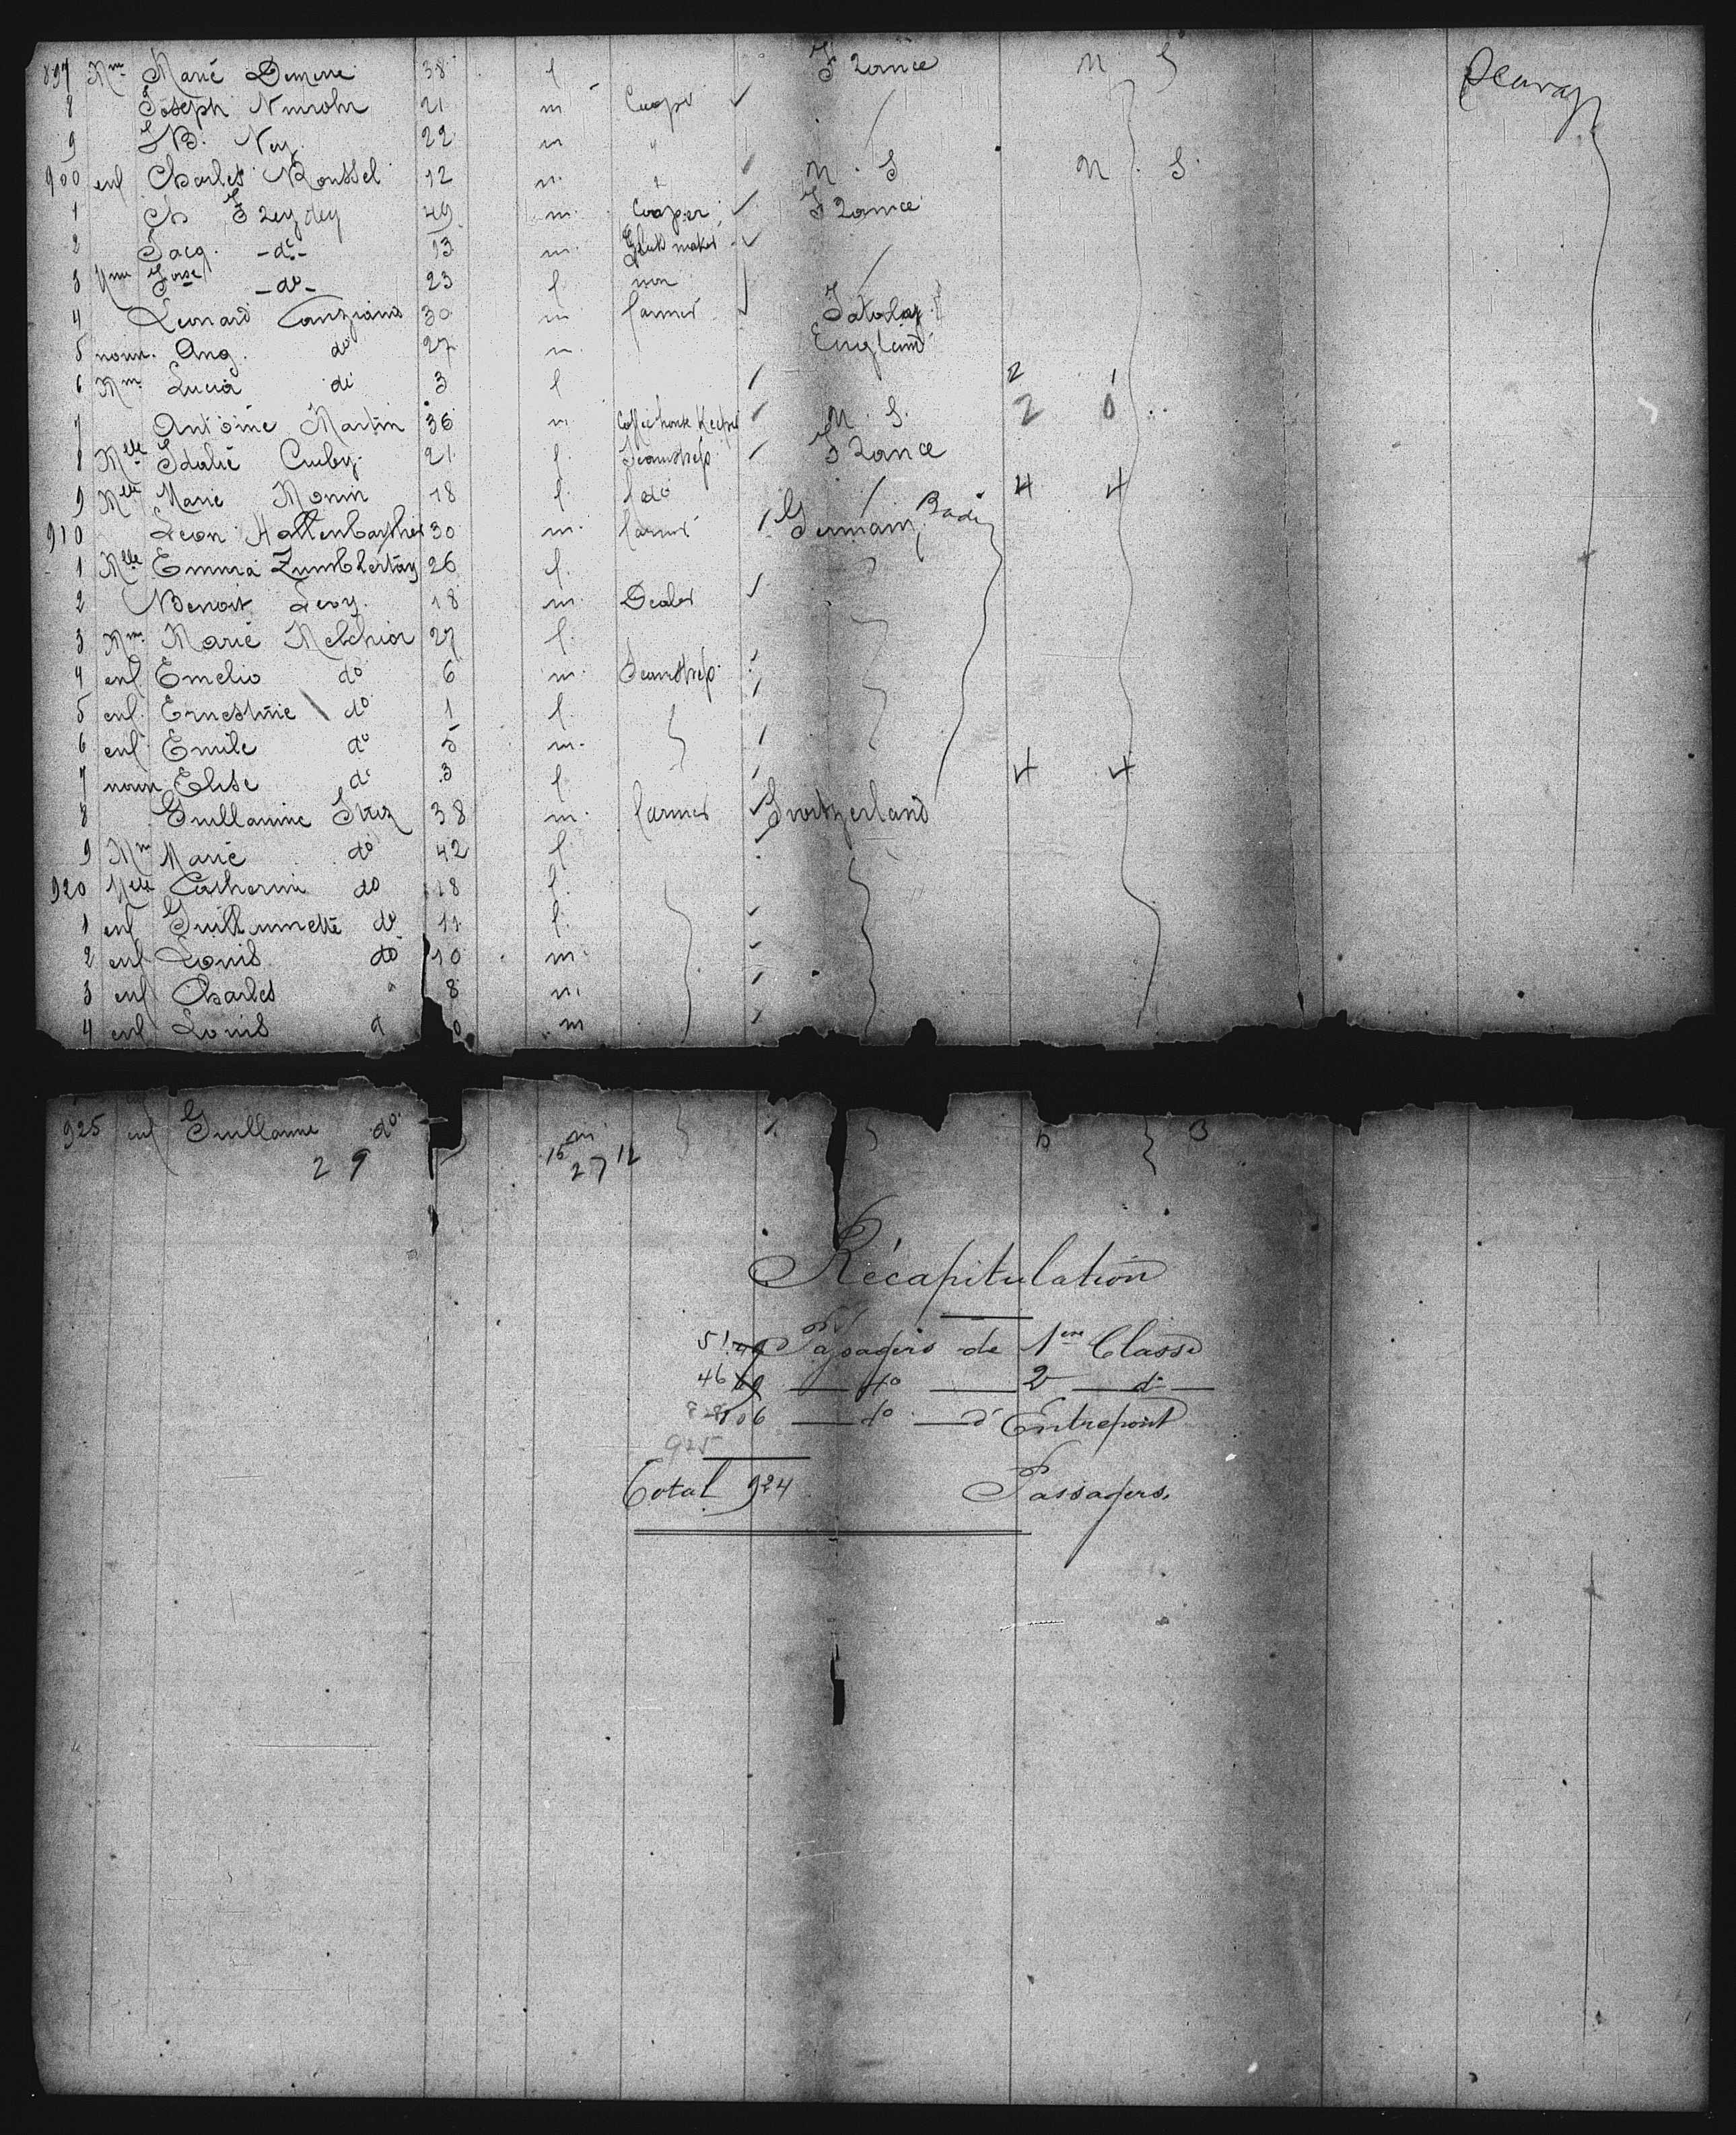 897 Mme Marie 38 f France U S Steerage
8 Joseph 21 m Cooper
9 J B. Ney 22 m "
900 enf Charles Roussel 12 m U. S U. S
1 Ch Freydey 49 m Cooper France
2 Jacq. -do- 13 m maker
3 Mme -do- 23 f non
4 Leonard 30 m farmer
5 nourr. Ang. do 27 m England
6 Mme Lucia do 3 f 2 1
7 Antoine Martin 36 m Coffee house Keeper U. S. 2 0
8 Mlle Idalie Cuby 21 f Seamstress France
9 Mlle Marie Monin 18 f do 4 4
910 Leon 30 m farmer Germany Bade
1 Mlle Emma 26 f
2 Benoit Levy 18 m Dealer
3 Mme Marie Melchior 27 f
4 enf Emelio do 6 m Seamstress
5 enf. Ernestine do 1 f
6 enf Emile do 5 m
7 nourr Elise do 3 f 4 4
8 Guillaume 38 m farmer Switzerland
9 Mme Marie do 42 f
920 Mlle Catherine do 18 f
1 enf Guillumette do 11 f
2 enf Louis do 10 m
3 enf Charles " 8 m
4 enf Louis d 0 m
925 enf Guillaume do m 5 3
29 15 27 12
Récapitulation
51 49 Passagers de 1ère Classe
46 69 do 2e do
828 806 do d'Entrepont
925
Total 924 Passagers.